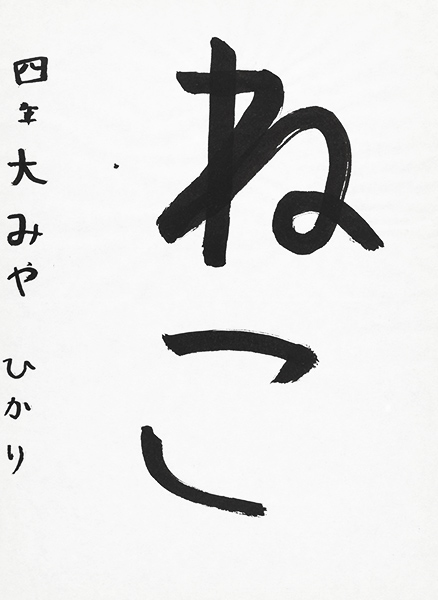 ねこ
四年 大みや ひかり